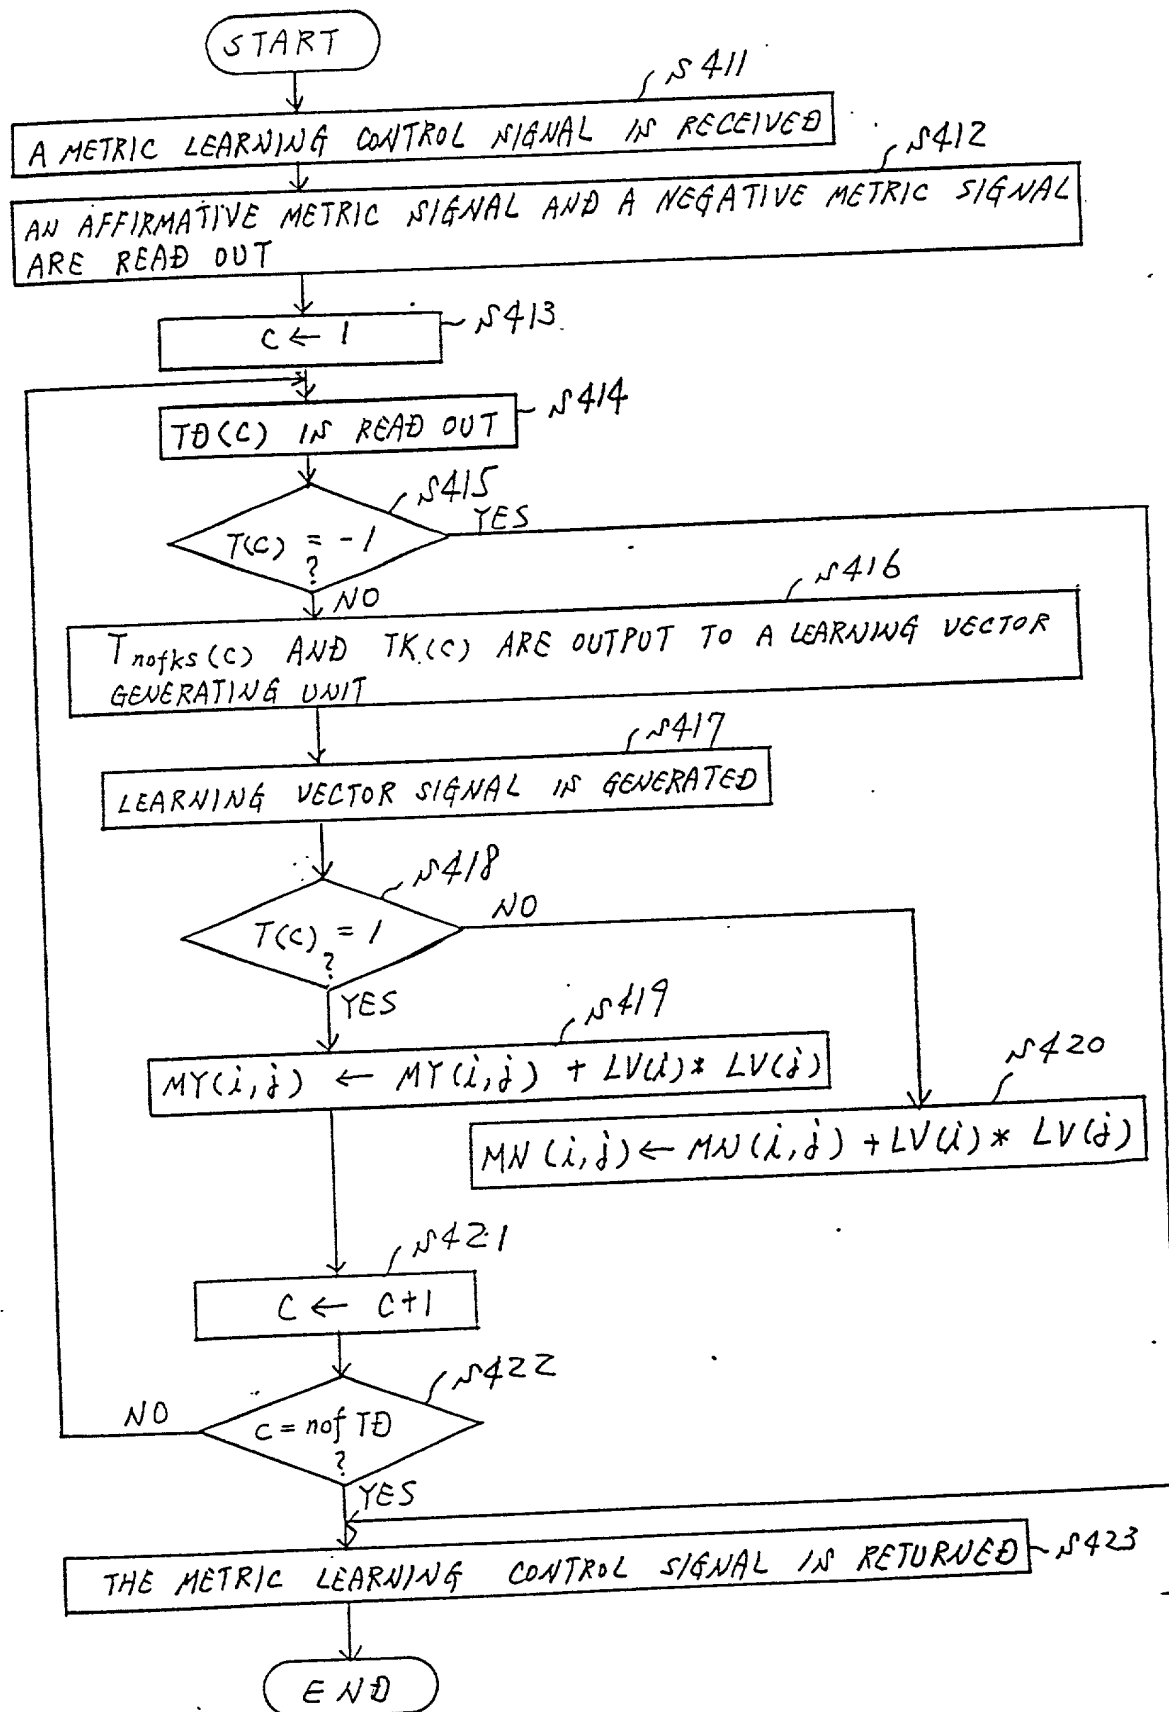 START
S411
A METRIC LEARNING CONTROL SIGNAL IS RECEIVED
S412
AN AFFIRMATIVE METRIC SIGNAL AND A NEGATIVE METRIC SIGNAL
ARE READ OUT
C ← 1
S413
TD(C) IS READ OUT
S414
S415
T(C) = -1
?
YES
NO
S416
Tnofks(C) AND TK(C) ARE OUTPUT TO A LEARNING VECTOR
GENERATING UNIT
S417
LEARNING VECTOR SIGNAL IS GENERATED
S418
T(C) = 1
?
NO
YES
S419
MY(i,j) ← MY(i,j) + LV(i)* LV(j)
S420
MN(i,j) ← MN(i,j) + LV(i)* LV(j)
S421
C ← C+1
S422
C = nof TD
?
NO
YES
THE METRIC LEARNING CONTROL SIGNAL IS RETURNED
S423
END